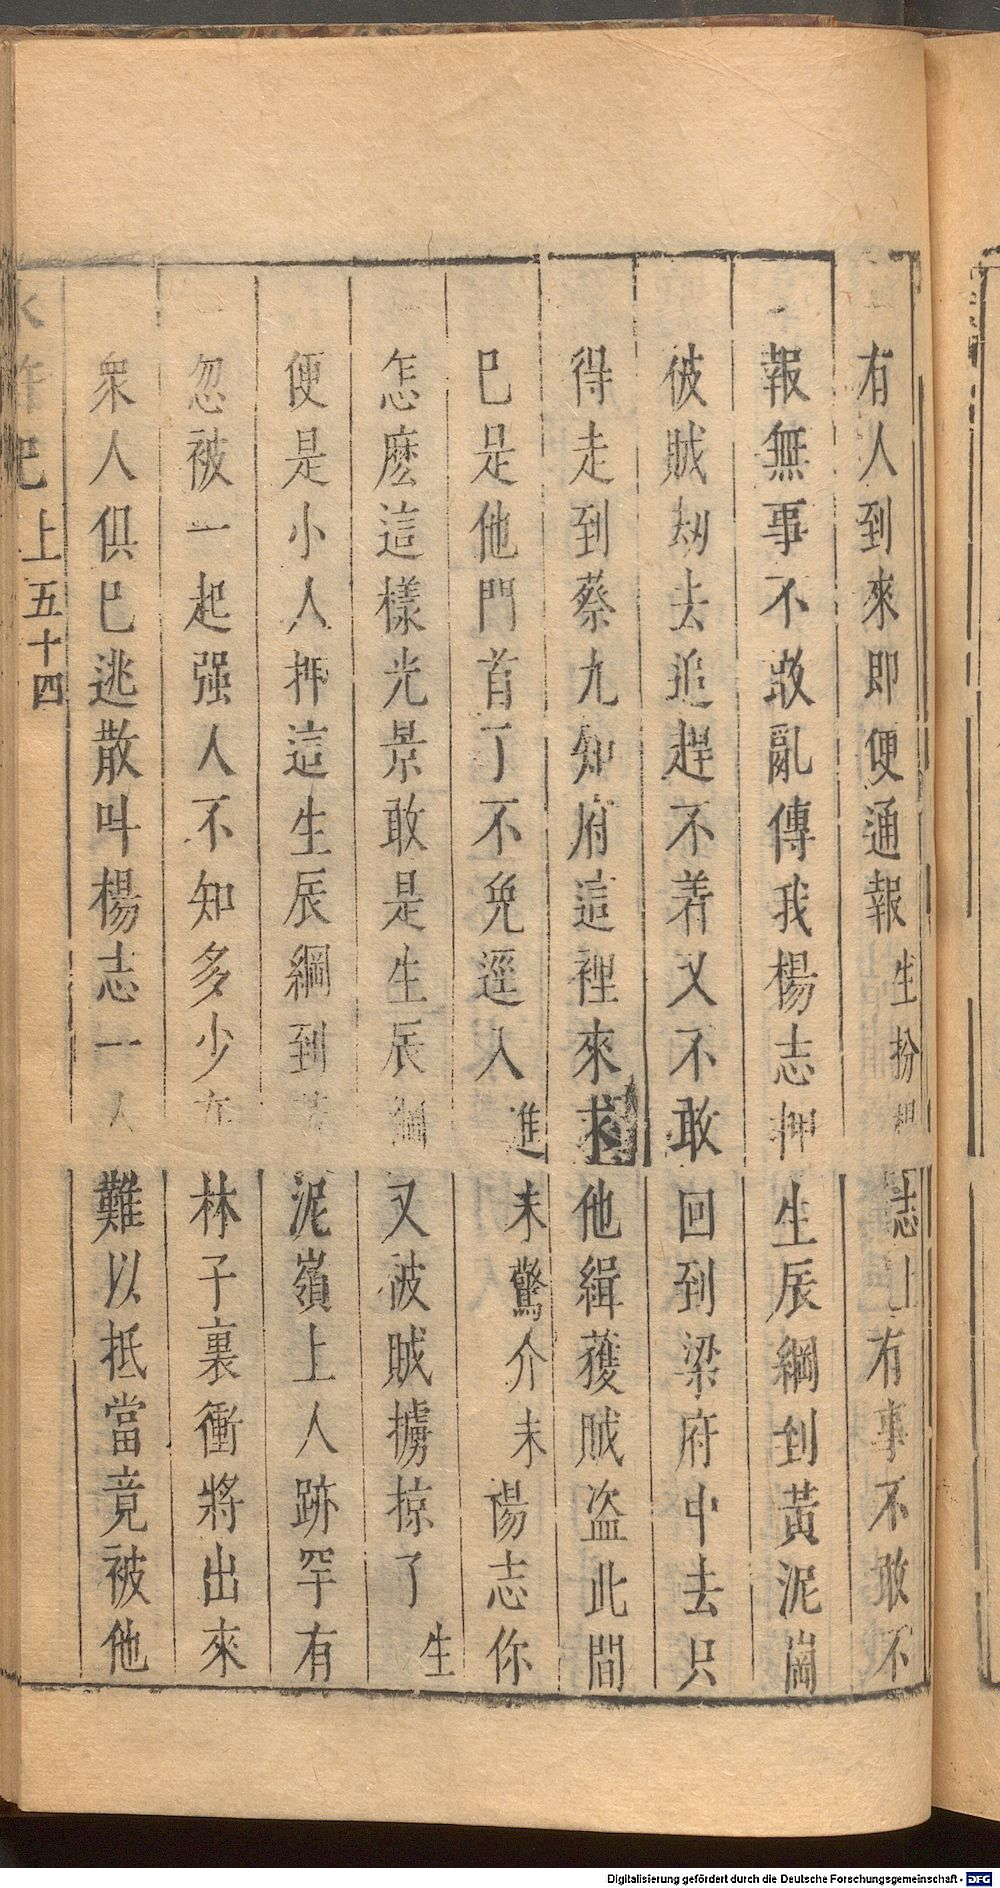 有人到來即便通報生扮楊志上有事不敢不
報無事不敢亂傳我楊志押生辰綱到黃泥崗
彼賊刼去追趕不着又不敢回到梁府中去只
得走到蔡九知府這裡來求他緝獲賊盜此間
已是他門首了不免逕入進末驚介末楊志你
怎麽這樣光景敢是生辰綱又被賊擄掠了生
便是小人押這生辰綱到黃泥嶺上人跡罕有
忽被一起强人不知多少在林子裏衝將出來
衆人俱已逃散叫楊志一人難以抵當竟被他
水滸記上五十四
Digitalisierung gefördert durch die Deutsche Forschungsgemeinschaft - DFG